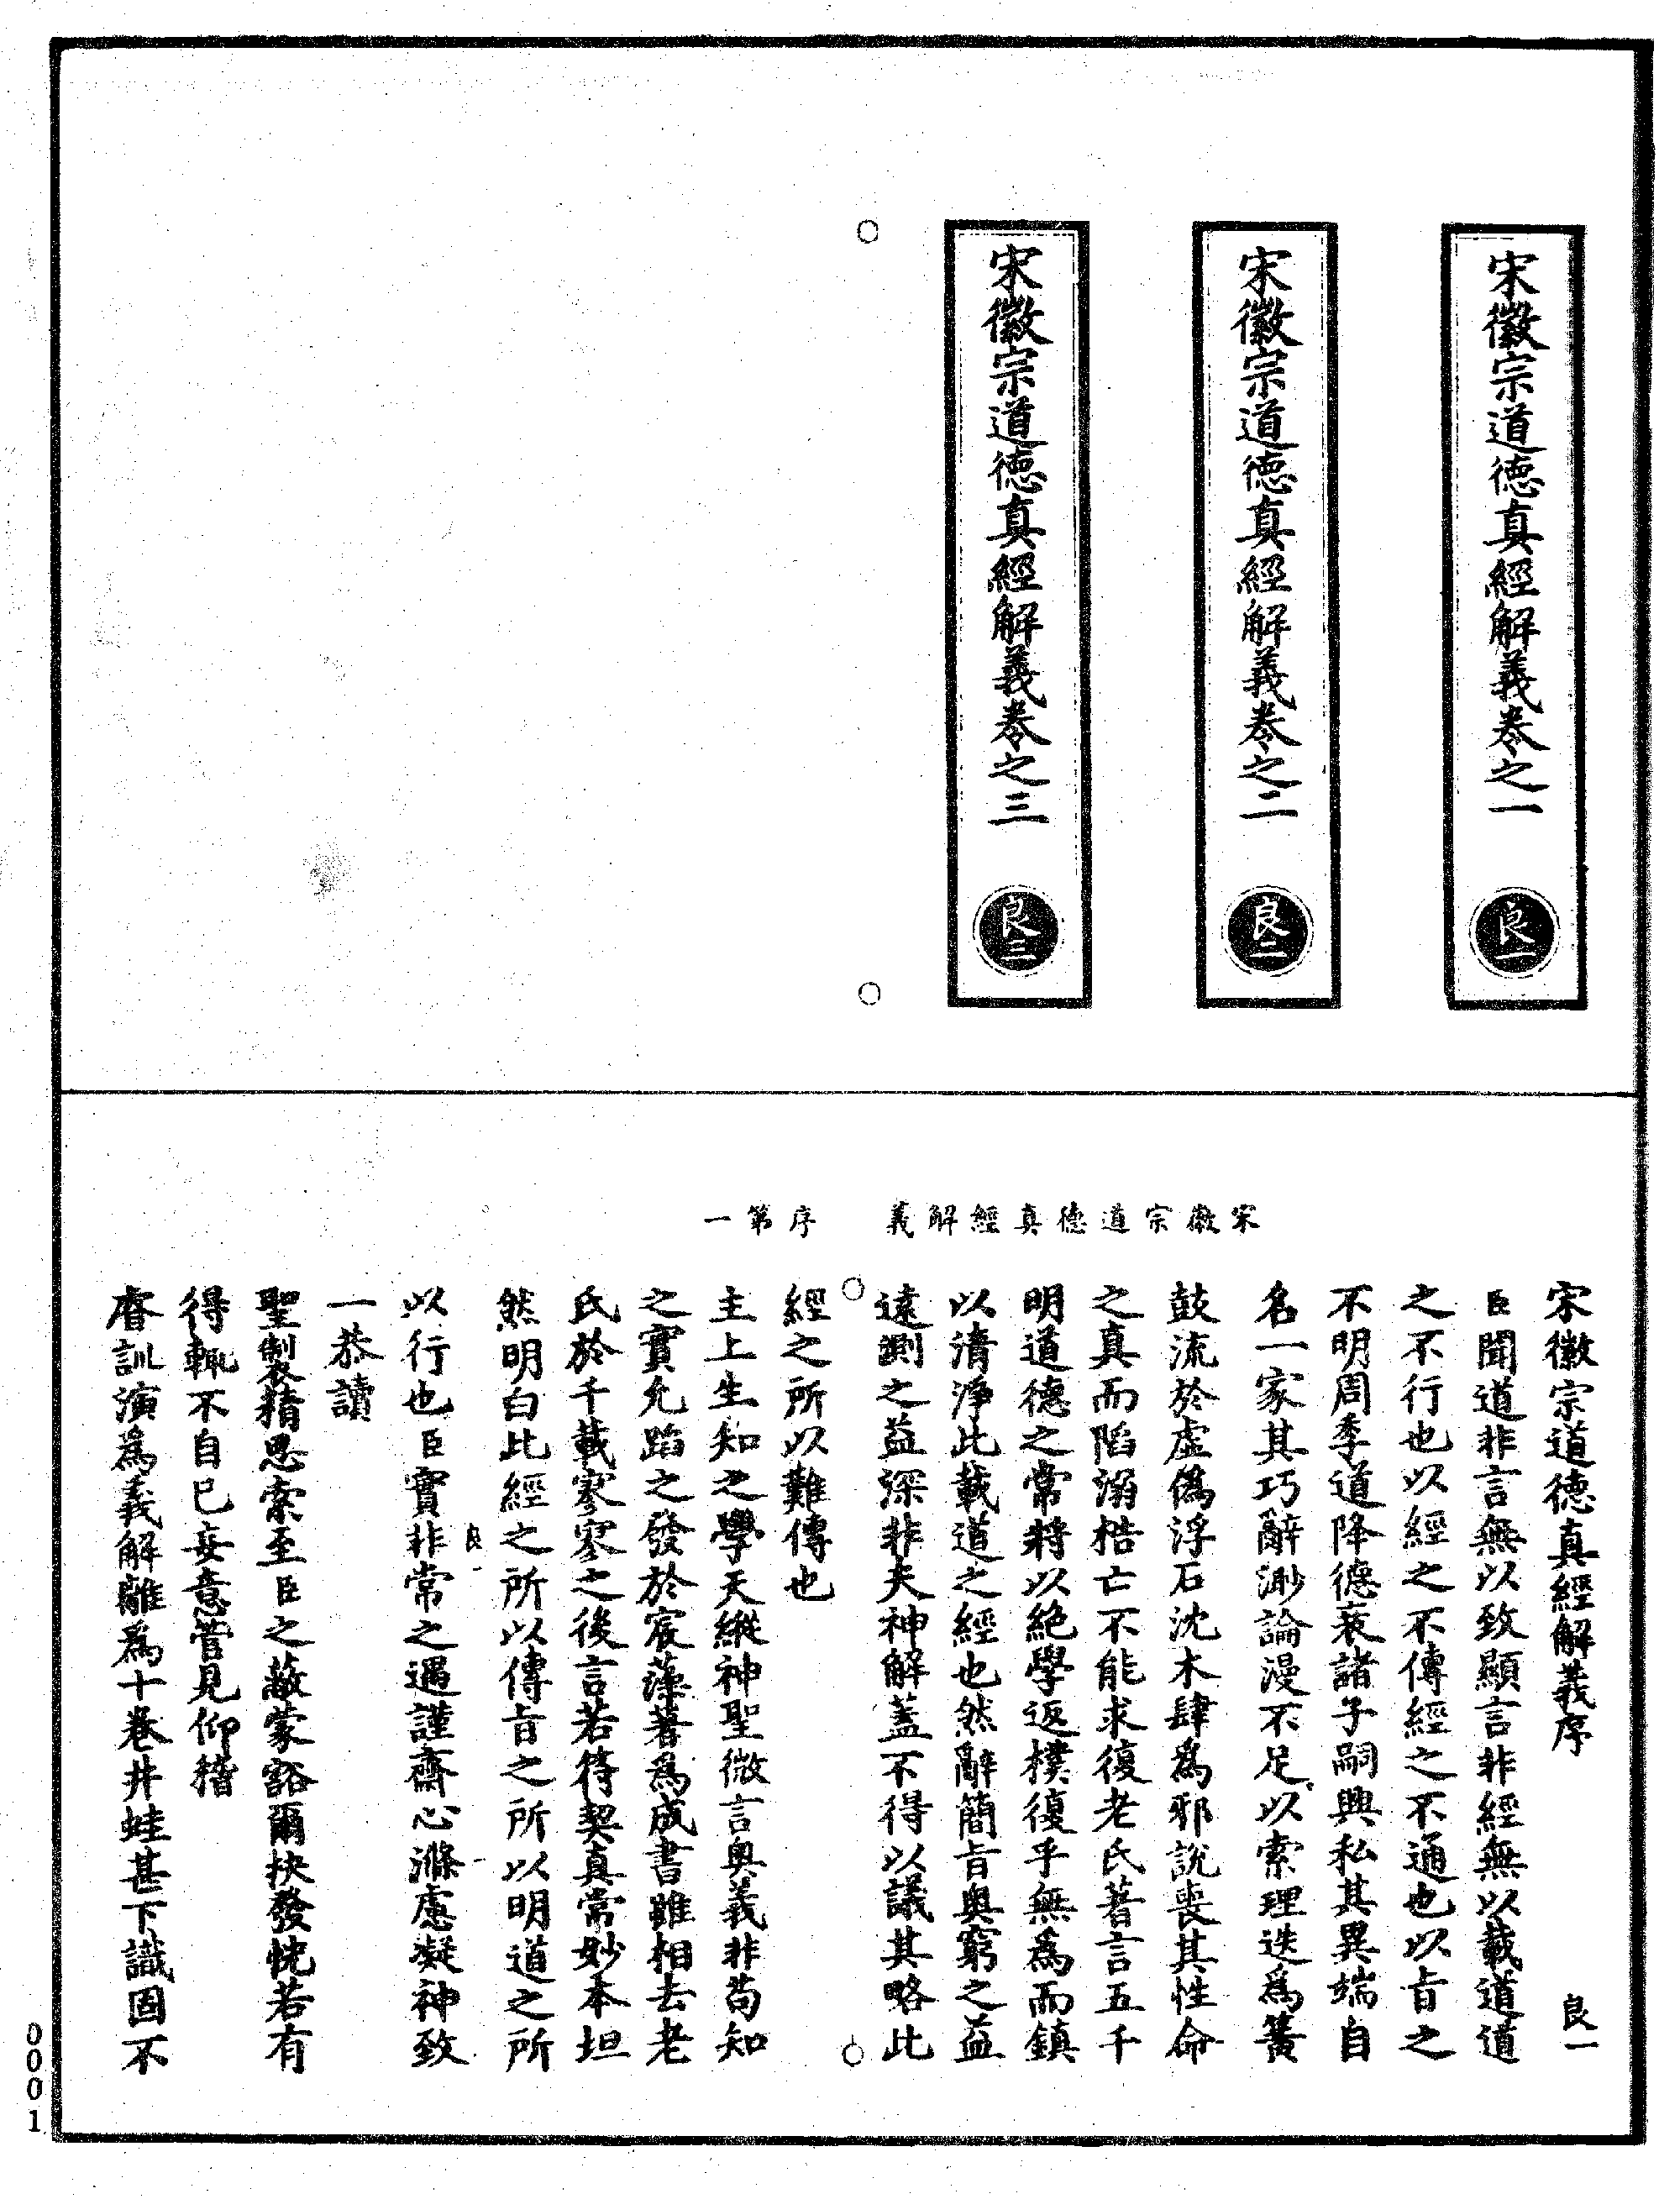 宋徽宗道德真經解義卷之一
良一
宋徽宗道德真經解義卷之二
良二
宋徽宗道德真經解義卷之三
良三
宋徽宗道德真經解義　序第一
宋徽宗道德真經解義序　良一
臣聞道非言無以致顯言非經無以載道道
之不行也以經之不傳經之不通也以旨之
不明周季道降德衰諸子嗣興私其異端自
名一家其巧辭渺論漫不足以索理迭為簧
鼓流於虛偽浮石沈木肆為邪說喪其性命
之真而陷溺梏亡不能求復老氏著言五千
明道德之常將以絕學返樸復乎無為而鎮
以清淨此載道之經也然辭簡旨奧窮之益
遠測之益深非夫神解蓋不得以議其略此
經之所以難傳也
主上生知之學天縱神聖微言奧義非苟知
之實允蹈之發於宸藻著為成書雖相去老
氏於千載寥寥之後言若符契真常妙本坦
然明白此經之所以傳旨之所以明道之所
以行也臣實非常之遇謹齋心滌慮凝神致
良一
一恭讀
聖製精思索至臣之蔽蒙豁爾抉發恍若有
得輒不自已妄意管見仰稽
睿訓演為義解離為十卷井蛙甚下識固不
0001